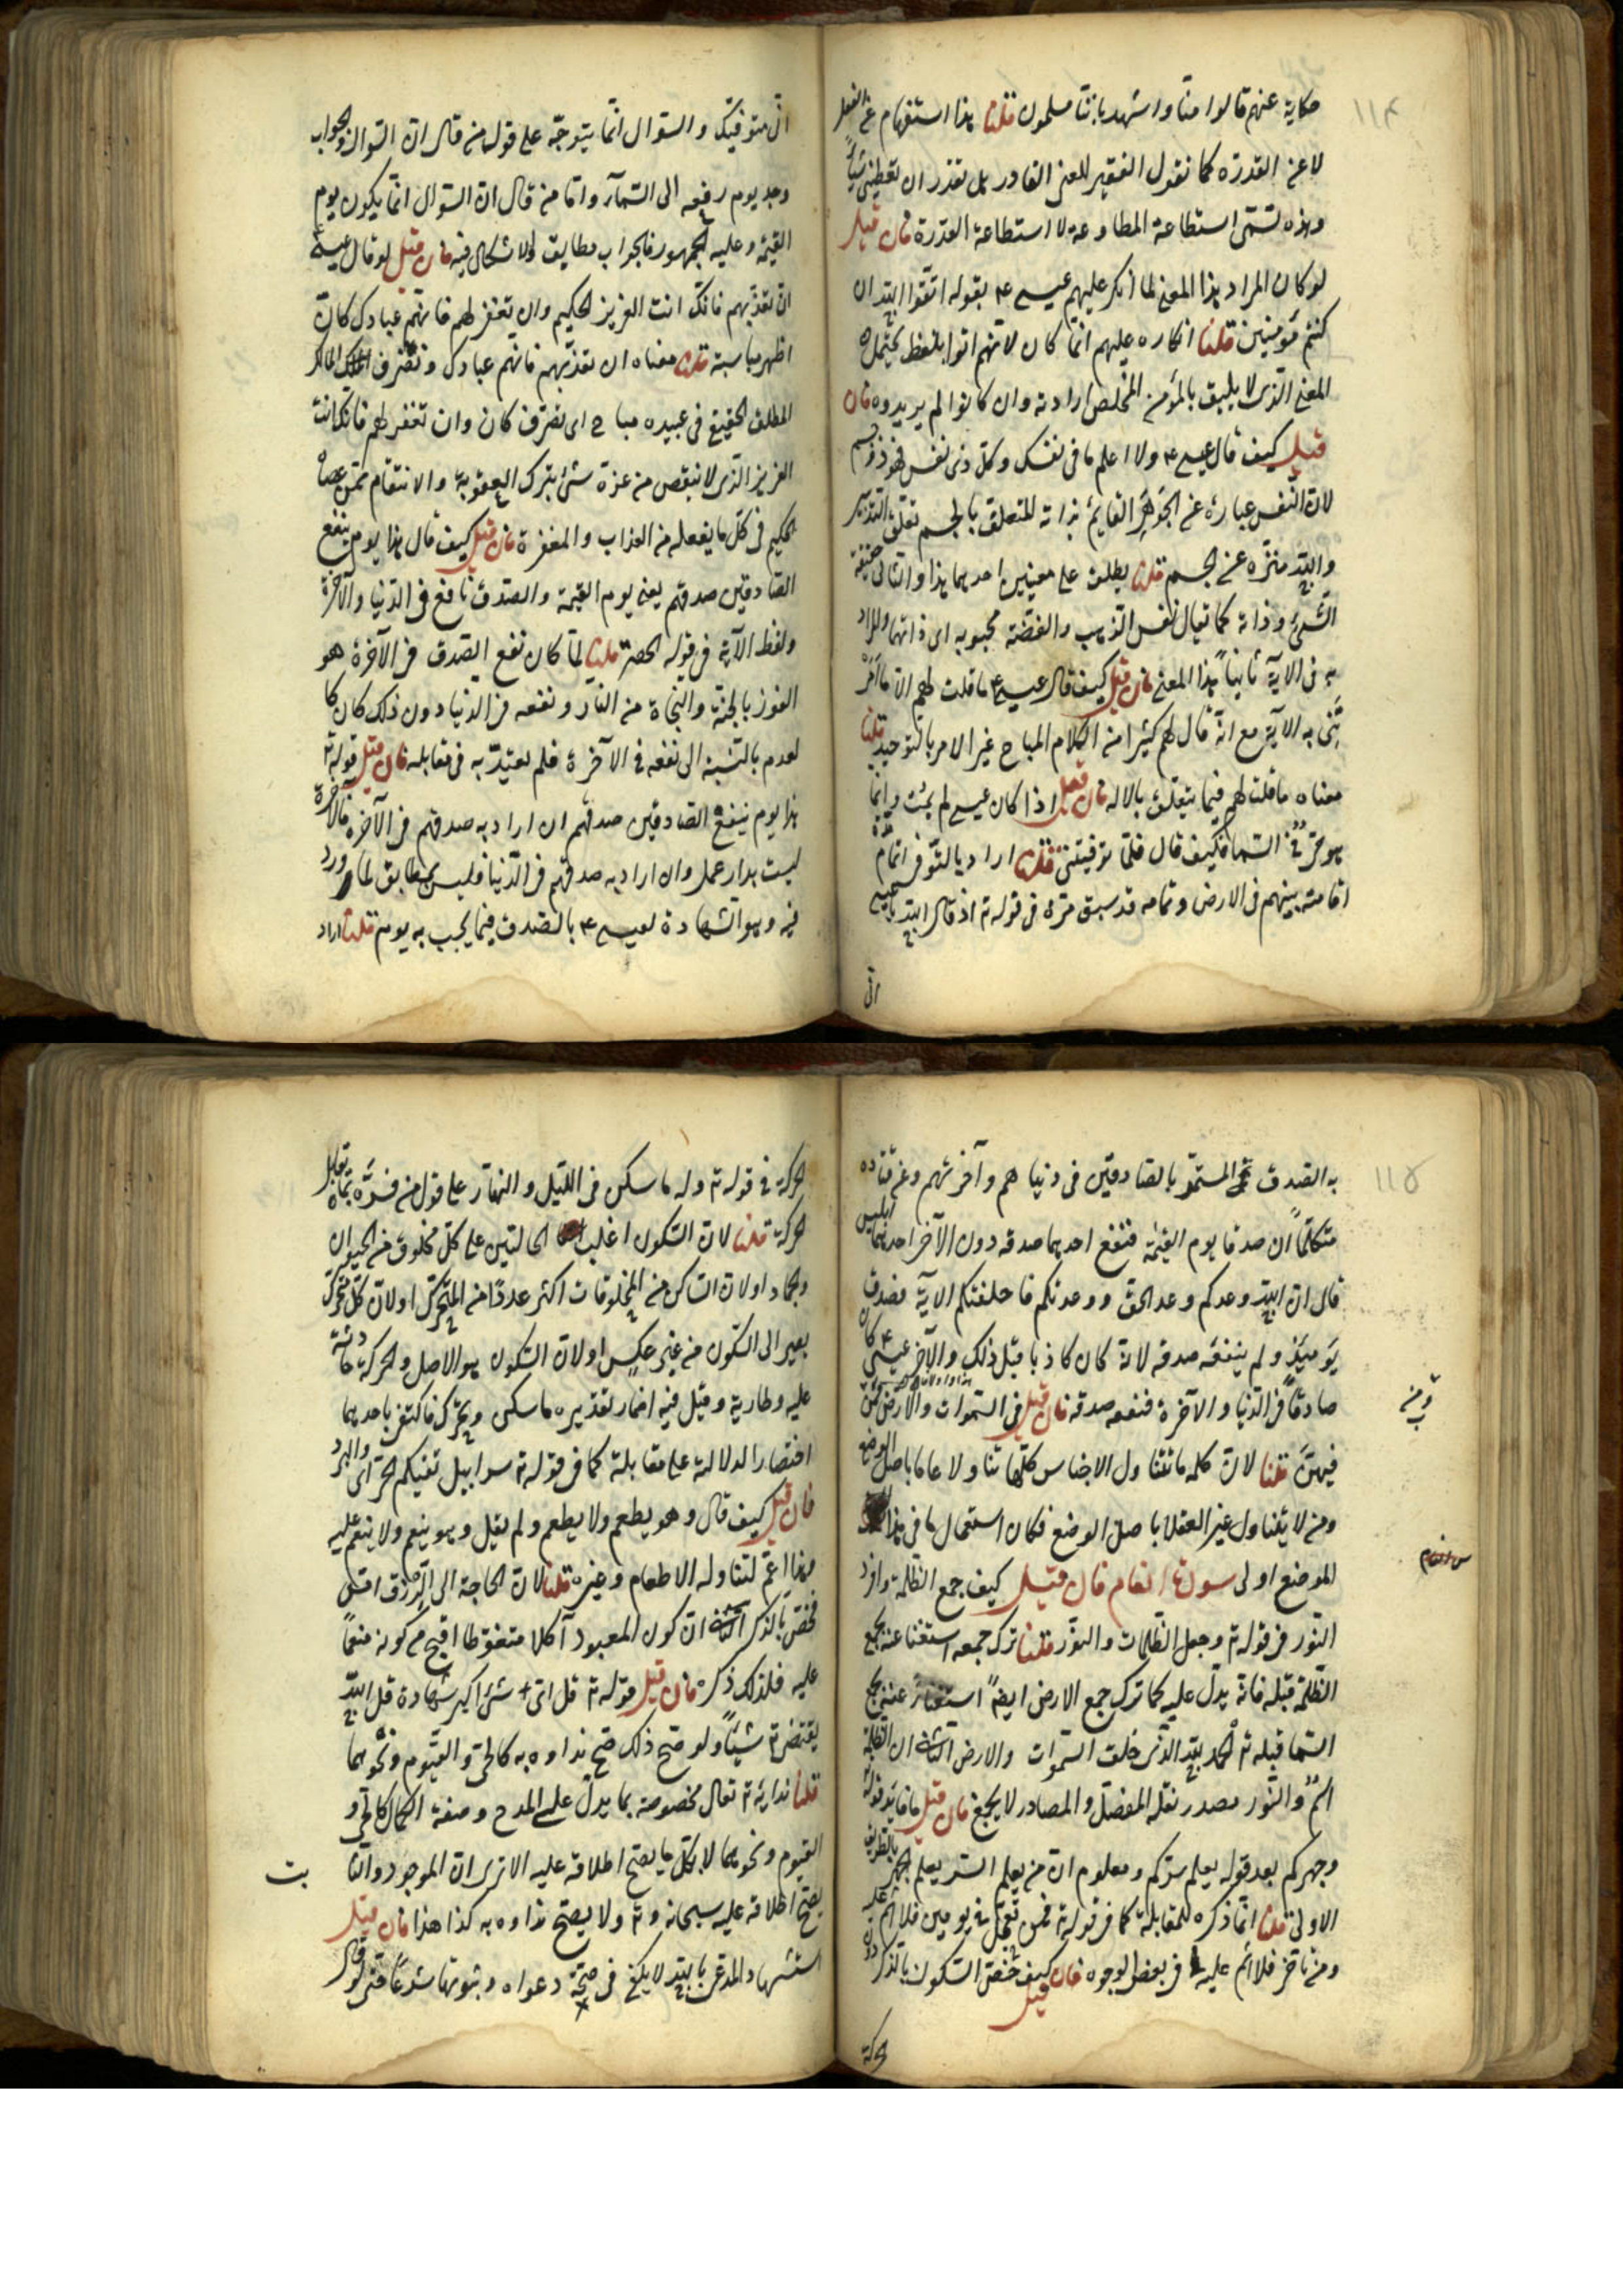 ١١٤
حكاية عنهم قالوا امنا واشهد باننا مسلمون قلنا هذا استفهام عن الفعل
لا عن القدرة كما نقول الفقير للغنى القادر هل تقدر ان تعطينى شيأ
وهذه تسمى استطاعة المطاوعة لا استطاعة القدرة فان قيل
لو كان المراد هذا المعنى لما انكر عليهم عيسى ع م بقوله اتقوا الله ان
كنتم مؤمنين قلنا انكاره عليهم انما كان لانهم اتوا بلفظ يحتمل
المعنى الذى لا يليق بالمؤمن المخلص ارادته وان كانوا لم يريدوه فان
قيل كيف قال عيسى ع م ولا اعلم ما فى نفسك وكل ذى نفس فهو ذو جسم
لان النفس عبارة عن الجوهر القايم بذاته المتعلق بالجسم تعلق التدبير
والله منزه عن الجسم قلنا يطلق على معنيين احدهما هذا والثانى حقيقة
الشئ وذاته كما يقال نفس الذهب والفضة محبوبه اى ذاتهما والمراد
به فى الاية ثانيا هذا المعنى فان قيل كيف قال عيسى ع م ما قلت لهم الا ما امر
تنى به الاية مع انه قال لهم كثيرا من الكلام المباح غير الامر بالتوحيد قلنا
معناه ما قلت لهم فيما يتعلق بالاله فان قيل اذا كان عيسى لم يمت وانما
هو حى فى السما فكيف قال فلما توفيتنى قلنا اراد بالتوفى اتمام مدة
اقامته بينهم فى الارض وتمامه قد سبق مرة فى قوله تع اذ قال الله يا عيسى
انى
انى متوفيك والسؤال انما يتوجه على قول من قال ان السوال والجواب
وجد يوم رفعه الى السماء واما من قال ان السؤال انما يكون يوم
القيمة وعليه الجمهور فالجواب مطابق ولا اشكال فيه فان قيل لو قال عيسى ع
ان تعذبهم فانك انت العزيز الحكيم وان تغفر لهم فانهم عبادك كان
اظهر مناسبة قلنا معناه ان تعذبهم فانهم عبادك وتصرف المالك
المطلق الحقيقى فى عبيده مباح اى تصرف كان وان تغفر لهم فانك انت
العزيز الذى لا ينقص من عزة شئ بترك العقوبة والانتقام ممن عصاه
الحكيم فى كل ما يفعله من العذاب والمغفرة فان قيل كيف قال هذا يوم ينفع
الصادقين صدقهم يعنى يوم القيمة والصدق نافع فى الدنيا والآخرة
ولفظ الآية فى قوله الحصر قلنا لما كان نفع الصدق فى الآخرة هو
الفوز بالجنة والنجاة من النار ونفعه فى الدنيا دون ذلك كان كا
لعدم بالنسبة الى نفعه فى الآخرة فلم يعتد به فى مقابله فان قيل قوله تع
هذا يوم ينفع الصادقين صدقهم ان اراد به صدقهم فى الآخرة فالآخرة
ليست بدار عمل وان اراد به صدقهم فى الدنيا فليس بمطابق لما ورد
فيه وهو الشهادة لعيسى ع م بالصدق فيما يجيب به يومئذ قلنا اراد
١١٥
به الصدق المستمر بالصادقين فى دنياهم وآخرتهم وعن قتاده
متكلمان صدقا يوم القيمة فنفع احدهما صدقه دون الآخر احدهما ابليس
قال ان الله وعدكم وعد الحق ووعدتكم فاخلفتكم الاية فصدق
يومئذ ولم ينفعه صدقه لانه كان كاذبا قبل ذلك والآخر عيسى ع م كان
صادقا فى الدنيا والآخرة فنفعه صدقه فان قيل فى السموات والارض ومن
فيهن قلنا لان كلمه ما تتناول الاجناس كلها تناولا عاما باصل الوضع
ومن لا يتناول غير العقلا باصل الوضع فكان استعمال ما فى هذا
الموضع اولى سورة انعام فان قيل كيف جمع الظلمة وافرد
النور فى قوله تع وجعل الظلمات والنور قلنا ترك جمعه استغنا عنه بجمع
الظلمة قبله فانه يدل عليه كما ترك جمع الارض ايضا استغنا عنه بجمع
السما قبله تع الحمد لله الذى خلق السموات والارض الثانى ان الظلمة
اسم والنور مصدر نقله المفضل والمصادر لا يجمع فان قيل ما فايدة قوله
وجهركم بعد قوله يعلم سركم ومعلوم ان من يعلم السر يعلم الجهر بالطريق
الاولى قلنا انما ذكره للمقابلة كما فى قوله تع فمن تعجل فى يومين فلا اثم عليه
ومن تاخر فلا اثم عليه فى بعض الوجوه فان قيل كيف خص السكون بالذكر دون
الحركة
ومن
س انعام
الحركة فى قوله تع وله ما سكن فى الليل والنهار على قول من فسره بما يقابل
الحركة قلنا لان السكون اغلب الحالتين على كل مخلوق من الحيوان
والجماد اولان الساكن من المخلوقات اكثر عددا من المتحرك اولان كل متحرك
يصير الى السكون من غير عكس اولان السكون هو الاصل والحركة حادثة
عليه وطارية وقيل فيه اضمار تقديره ما سكن وتحرك فاكتفى باحدهما
اختصارا لدلالته على مقابلة كما فى قوله تع سرابيل تقيكم الحر اى والبرد
فان قيل كيف قال وهو يطعم ولا يطعم ولم يقل وهو ينعم ولا ينعم عليه
وهذا اعم لتناوله الاطعام وغيره قلنا لان الحاجة الى الرزق امس
فخص بالذكر الثانى ان كون المعبود آكلا متغوطا اقبح من كونه منعما
عليه فلذلك ذكره فان قيل قوله تع قل اى شئ اكبر شهادة قل الله
يقتضى تع شيأ ولو صح ذلك صح نداوه به كالحى والقيوم ونحوهما
قلنا نداؤه تع تعالى مخصوصة بما يدل على المدح وصفة الكمال كالحى و
القيوم ونحوهما لا بكل ما يصح اطلاقه عليه الا ترى ان الموجود والثا
بت
يصح اطلاقه عليه سبحانه وتع ولا يصح نداوه به كذا هذا فان قيل
استشهاد المدعى بالله لا يكفى فى صحة دعواه وثبوتها شرعا حتى لو قال